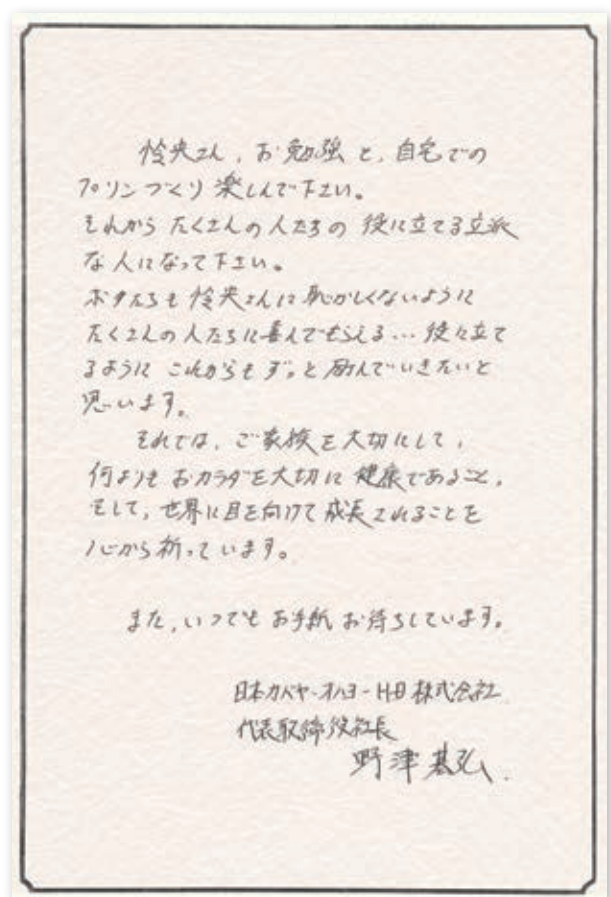 怜央さん、お勉強と、自宅での
プリンづくり楽しんで下さい。
それから たくさんの人たちの 役に立てる立派
な人になって下さい。
ボクたちも 怜央さんに 恥かしくないように
たくさんの人たちに喜んでもらえる…役に立て
るように これからもずっと励んでいきたいと
思います。
それでは、ご家族を大切にして、
何よりも おカラダを大切に 健康であること、
そして、世界に目を向けて 成長されることを
心から祈っています。
また、いつでも お手紙 お待ちしています。
日本カバヤ・オハヨーHD株式会社
代表取締役社長
野津基弘